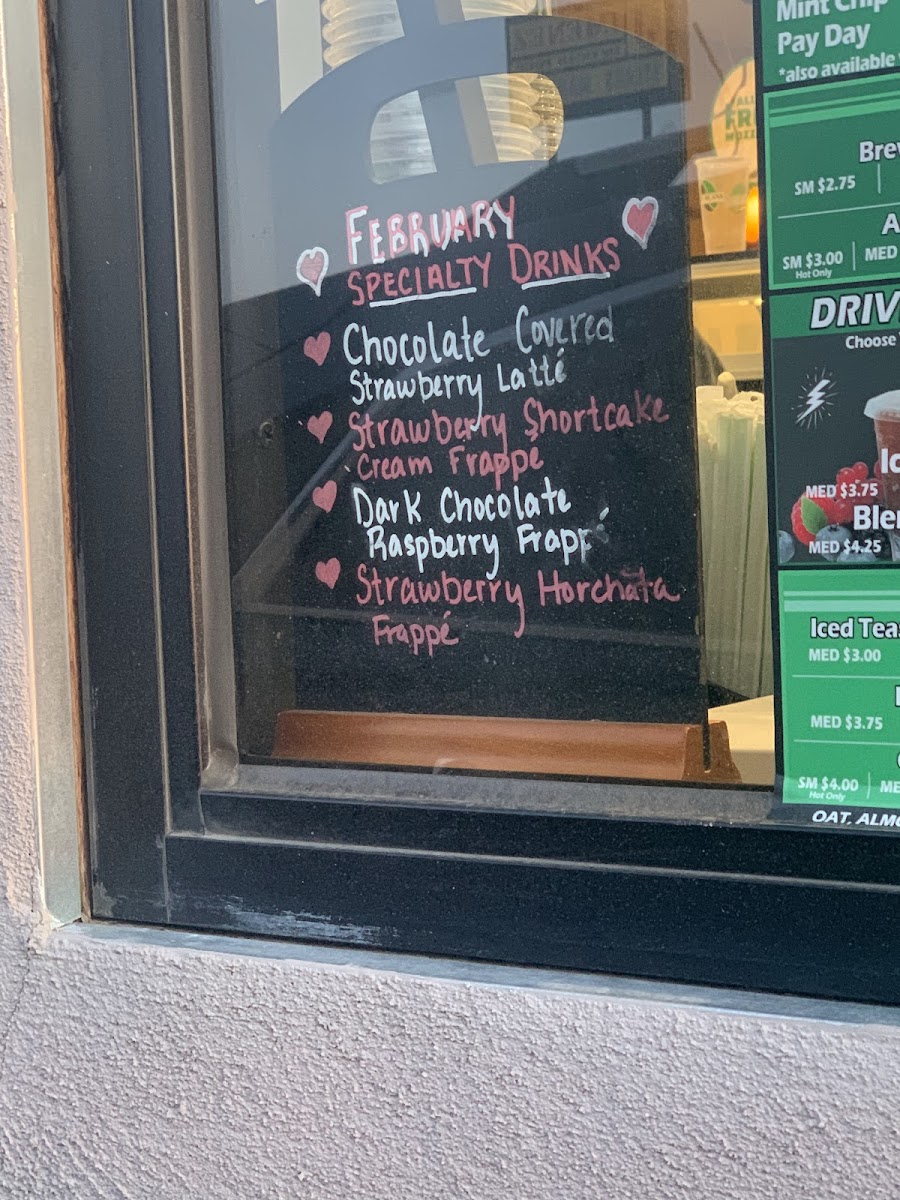 FEBRUARY
SPECIALTY DRINKS
Chocolate Covered
Strawberry Latté
Strawberry Shortcake
Cream Frappé
Dark Chocolate
Raspberry Frapp
Strawberry Horchata
Frappé
Mint Chip
Pay Day
*also available
SM $2.75
SM $3.00
MED
Hot Only
Choose
MED $3.75
MED $4.25
Iced Teas
MED $3.00
MED $3.75
SM $4.00
Hot Only
OAT,